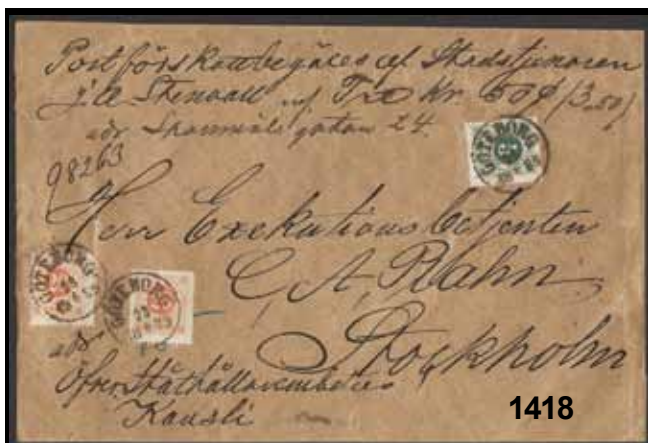 Postförskott begäres af Stadstjenaren
J. A. Stenvall Tre Kr. 50 ø (3,50)
adr Spannmåls gatan 24.
98263
GÖTEBORG
Herr Exekutionsbetjenten
C, A, Rahn
GÖTEBORG
GÖTEBORG
Stockholm
adr
Öfver Ståthållareembetes
Kansli
1418